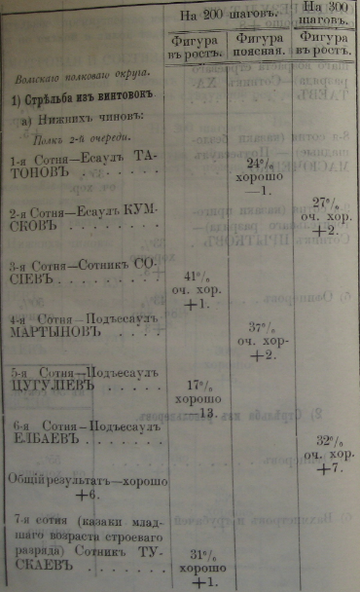 На 200 шаговъ.
На 300 шаговъ.
Фигура въ ростъ.
Фигура поясная.
Фигура въ ростъ.
Волгскаго полковаго округа.
1) Стрѣльба изъ винтовокъ
а) Нижнихъ чиновъ:
Полкъ 2-й очереди.
1-я Сотня—Есаулъ ТА-
ТОНОВЪ . . . . . . 24% хорошо —1.
2-я Сотня—Есаулъ КУМ-
СКОВЪ . . . . . . 27% оч. хор. +2.
3-я Сотня—Сотникъ СО-
СІЕВЪ . . . . . . 41% оч. хор. +1.
4-я Сотня—Подъесаулъ
МАРТЫНОВЪ . . . . 37% оч. хор- +2.
5-я Сотня—Подъесаулъ
ЦУГУЛІЕВЪ . . . . . 17% хорошо —13.
6-я Сотня—Подъесаулъ
ЕЛБАЕВЪ . . . . . . 32% оч. хор. +7.
Общій результатъ—хорошо
+6.
7-я сотня (казаки млад-
шаго возраста строеваго
разряда) Сотникъ ТУ-
СКАЕВЪ . . . . . . 31% хорошо +1.